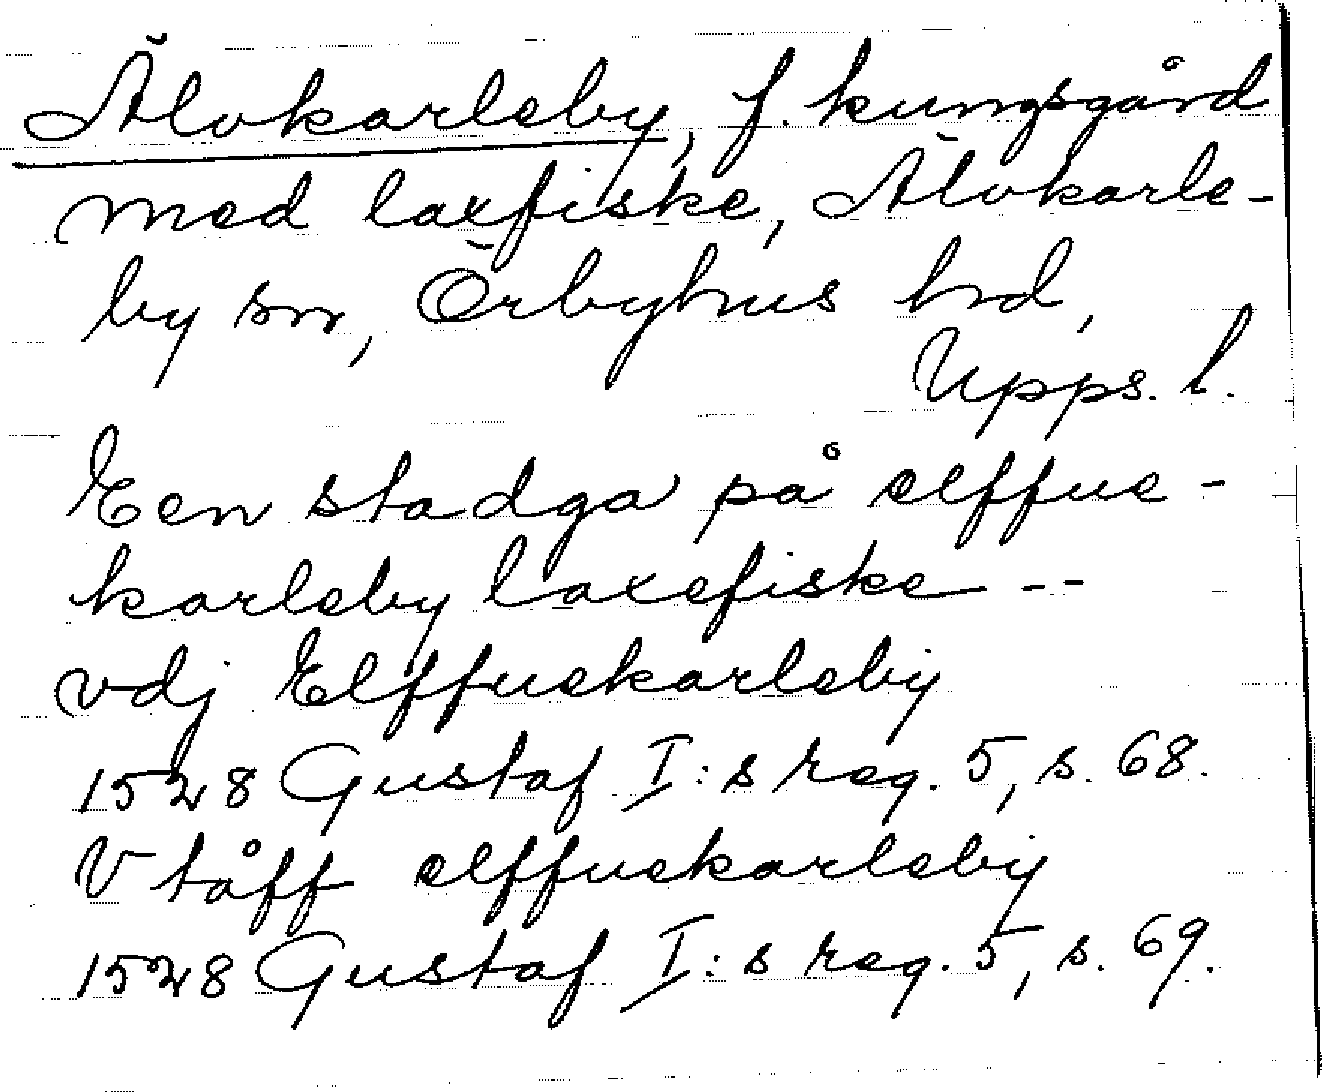 Älvkarleby, f. kungsgård
med laxfiske, Älvkarle-
by sn, Örbyhus hd,
Upps. l.
Een stadga på elffue-
karleby laxefiske --
vdj Elffuekarleby
1528 Gustaf I:s reg. 5, s. 68.
Vtåff elffuekarleby
1528 Gustaf I:s reg. 5, s. 69.